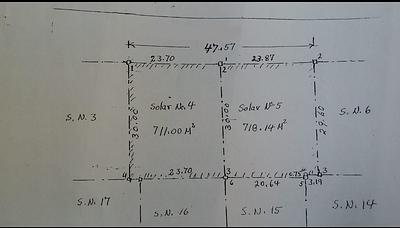 47.57
23.70 23.87
1 1 2 2
S. N. 3 Solar No. 4 Solar No 5 S. N. 6
30.00 30.00 29.60
711.00 M² 718.14 M²
4 23.70 3 4 3
6 20.64 5 3.19
S. N. 17 S. N. 16 S. N. 15 S. N. 14